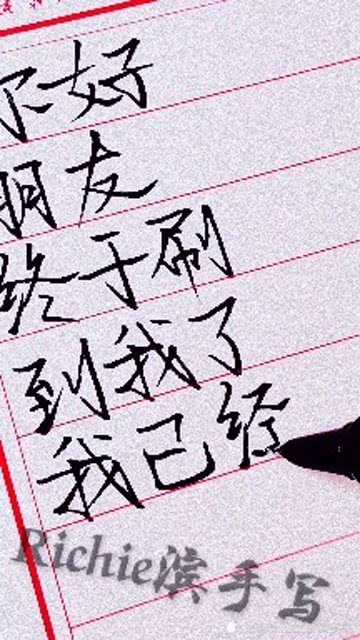 你好
朋友
终于刷
到我了
我已经
Richie滨手写